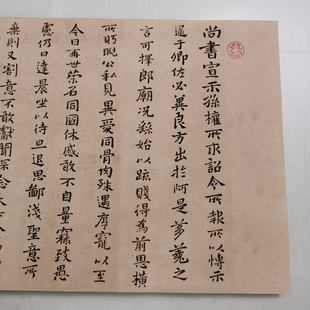 尚書宣示孫權所求詔令所報所以博示
逮于卿佐必冀良方出於阿是芻蕘之
言可擇郎廟況繇始以疏賤得為前恩橫
所眄睨公私見異愛同骨肉殊遇厚寵以至
今日再世榮名同國休慼敢不自量竊致愚
慮仍日達晨坐以待旦退思鄙淺聖意所
棄則又割意不敢獻聞深念天下